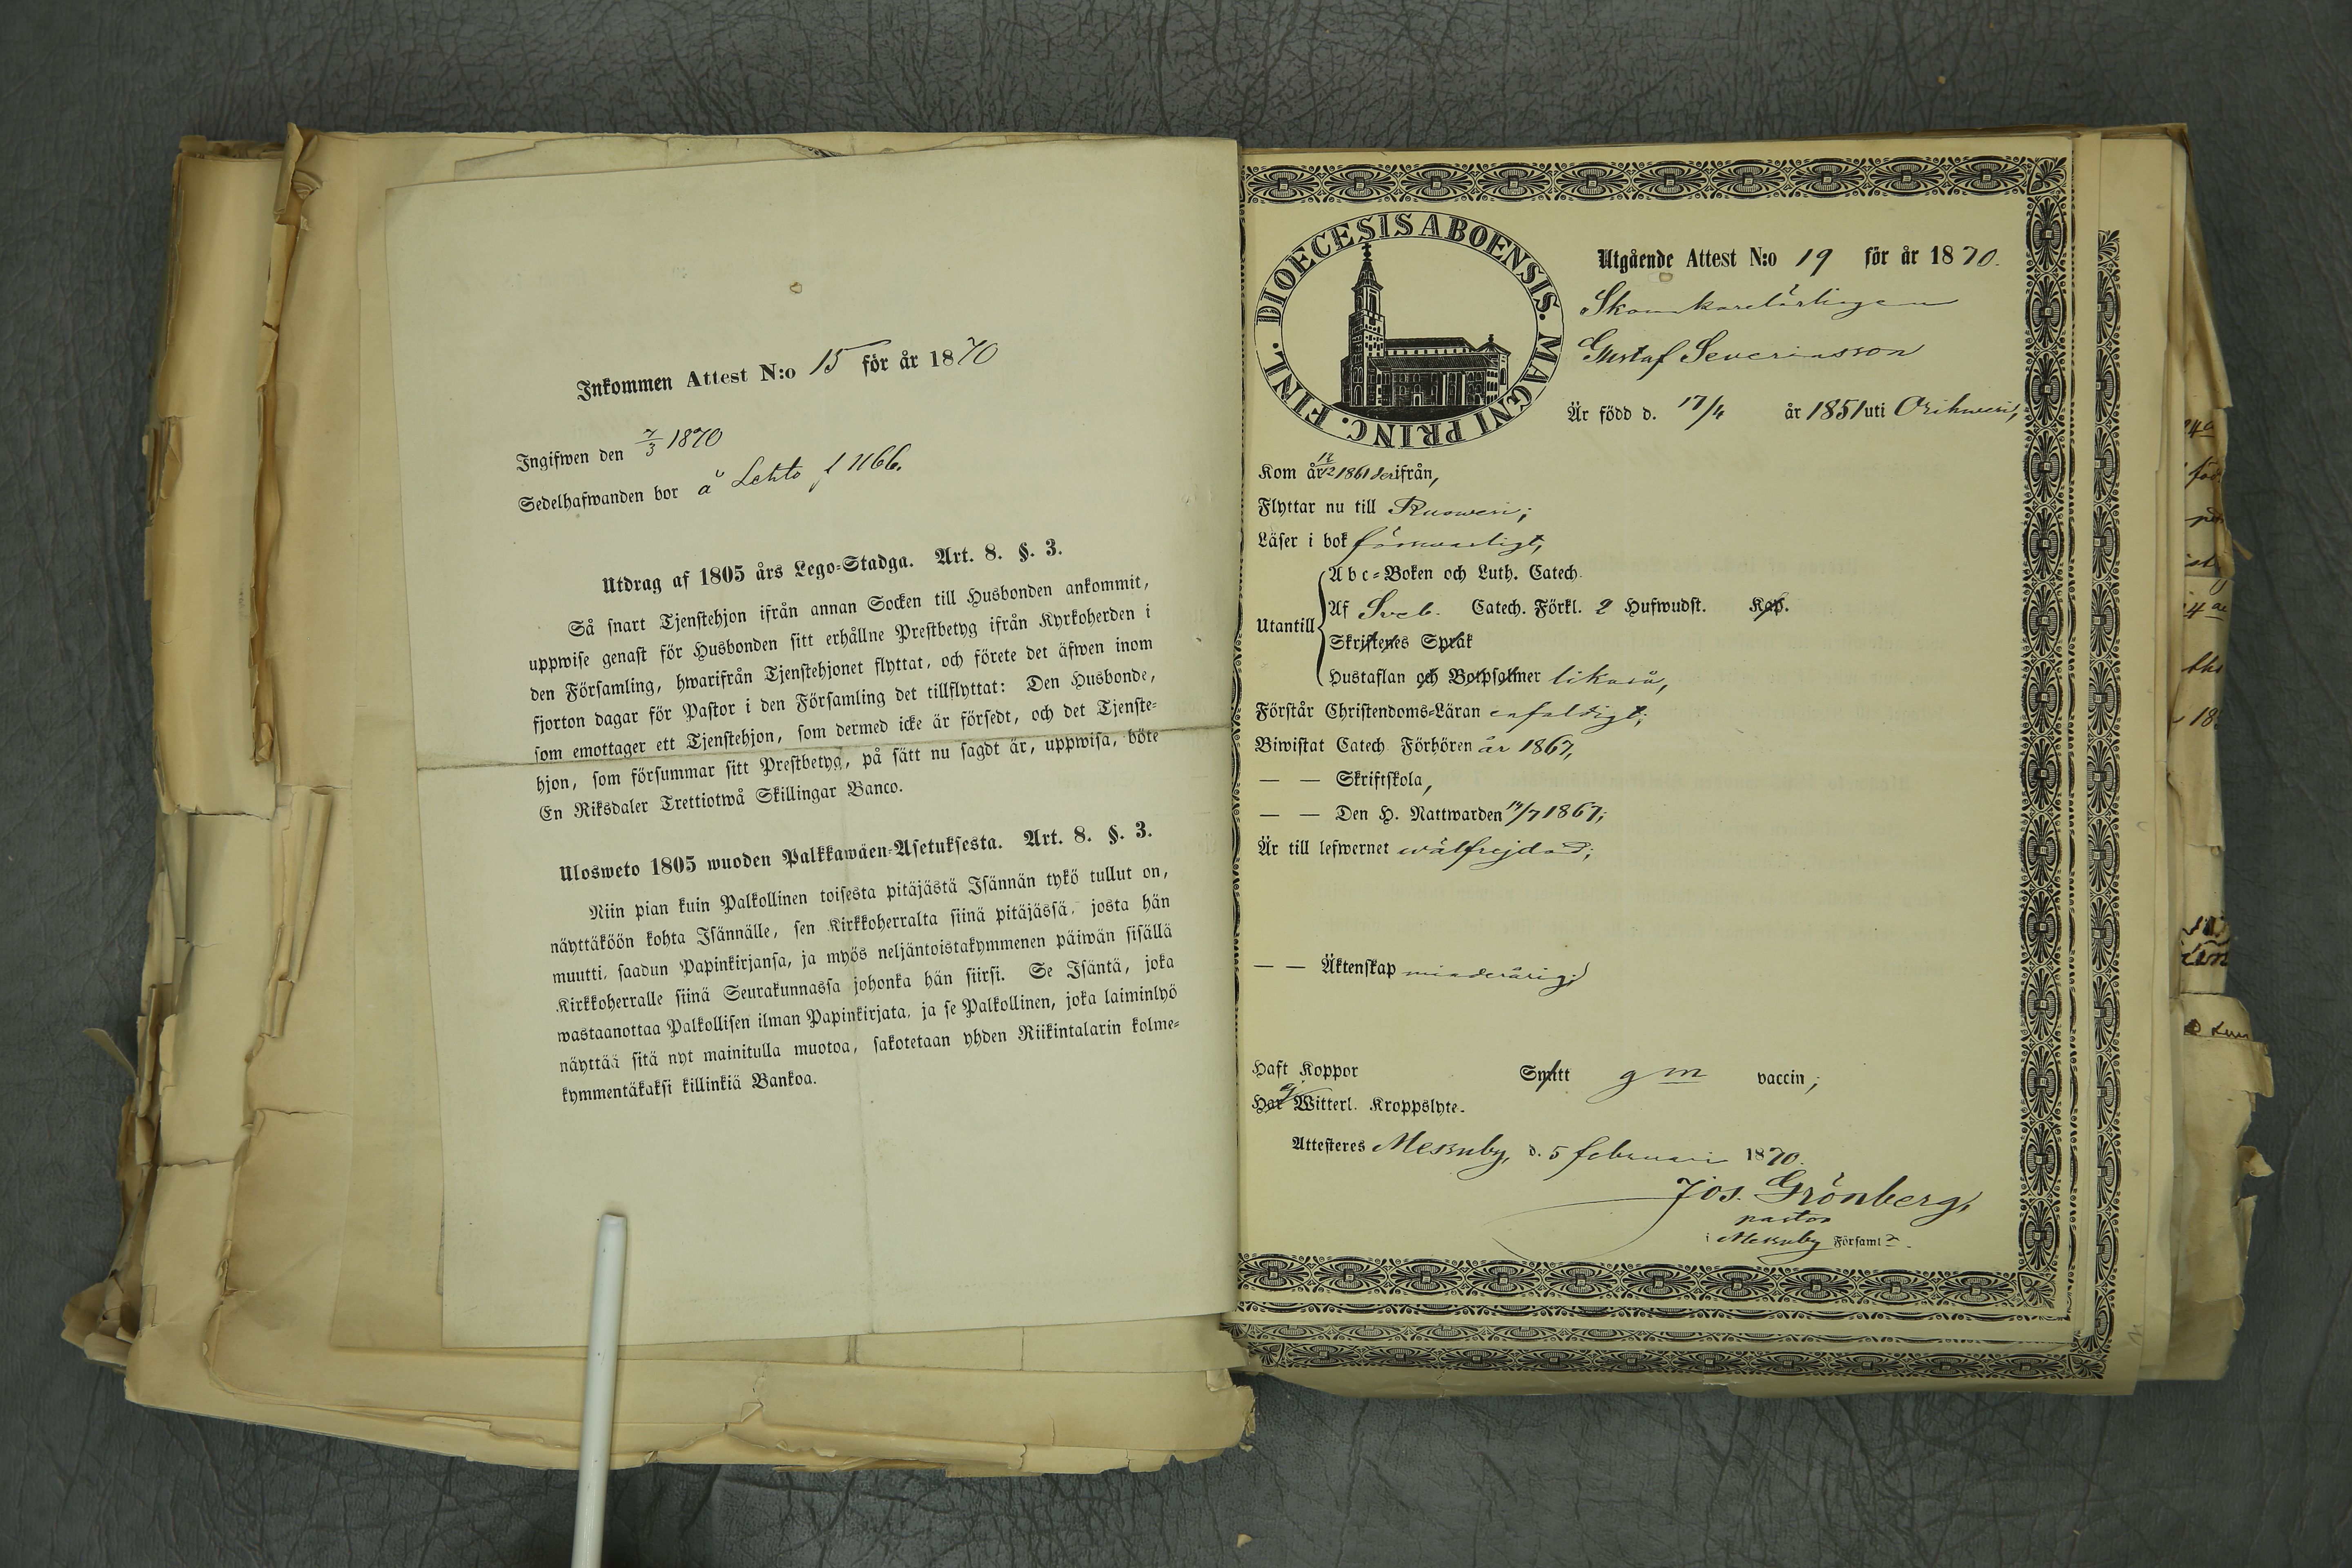 Inkommen Attest N:o 15 för år 1870
Ingifwen den 7/3 1870
Sedelhafwanden bor å Lehto f 1166.
Utdrag af 1805 års Lego-Stadga. Art. 8. §. 3.
Så snart Tjenstehjon ifrån annan Socken till Husbonden ankommit,
uppwise genast för Husbonden sitt erhållne Prestbetyg ifrån Kyrkoherden i
den Församling, hwarifrån Tjenstehjonet flyttat, och förete det äfwen inom
fjorton dagar för Pastor i den Församling det tillflyttat: Den Husbonde,
som emottager ett Tjenstehjon, som dermed icke är försedt, och det Tjenste-
hjon, som försummar sitt Prestbetyg, på sätt nu sagdt är, uppwisa, böte
En Riksdaler Trettiotwå Skillingar Banco.
Ulosweto 1805 wuoden Palkkawäen-Asetuksesta. Art. 8. §. 3.
Niin pian kuin Palkollinen toisesta pitäjästä Isännän tykö tullut on,
näyttäköön kohta Isännälle, sen Kirkkoherralta siinä pitäjässä, josta hän
muutti, saadun Papinkirjansa, ja myös neljäntoistakymmenen päiwän sisällä
Kirkkoherralle siinä Seurakunnassa johonka hän siirsi. Se Isäntä, joka
wastaanottaa Palkollisen ilman Papinkirjata, ja se Palkollinen, joka laiminlyö
näyttää sitä nyt mainitulla muotoa, sakotetaan yhden Riikintalarin kolme-
kymmentäkaksi killinkiä Bankoa.
DIOECESIS ABOENSIS. MAGNI PRINC. FINL.
Utgående Attest N:o 19 för år 1870.
Skomakarelärlingen
Gustaf Severinsson
Är född d. 17/4 år 1851 uti Orihwesi,
Kom år 12/12 1861 derifrån,
Flyttar nu till Ruowesi;
Läser i bok försvarligt,
Utantill
Abc-Boken och Luth. Catech.
Af Sveb. Catech. Förkl. 2 Hufwudst. Kap.
Skriftenes Språk
Hustaflan och Botpsalmer likaså,
Förstår Christendoms-Läran enfaldigt;
Biwistat Catech. Förhören år 1867,
— — Skriftskola,
— — Den H. Nattwarden 14/7 1867;
Är till lefwernet wälfrejdad;
— — Äktenskap minderårig;
Haft Koppor Smitt g m vaccin;
Har ej Witterl. Kroppslyte.
Attesteres Messuby, d. 5 februari 1870.
Jos. Grönberg,
pastor
i Messuby Församl.